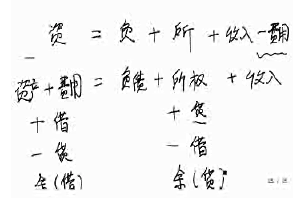 资 = 负 + 所 + 收入 - 费用
资产 + 费用 = 负债 + 所权 + 收入
+ 借 + 贷
- 贷 - 借
余(借) 余(贷)